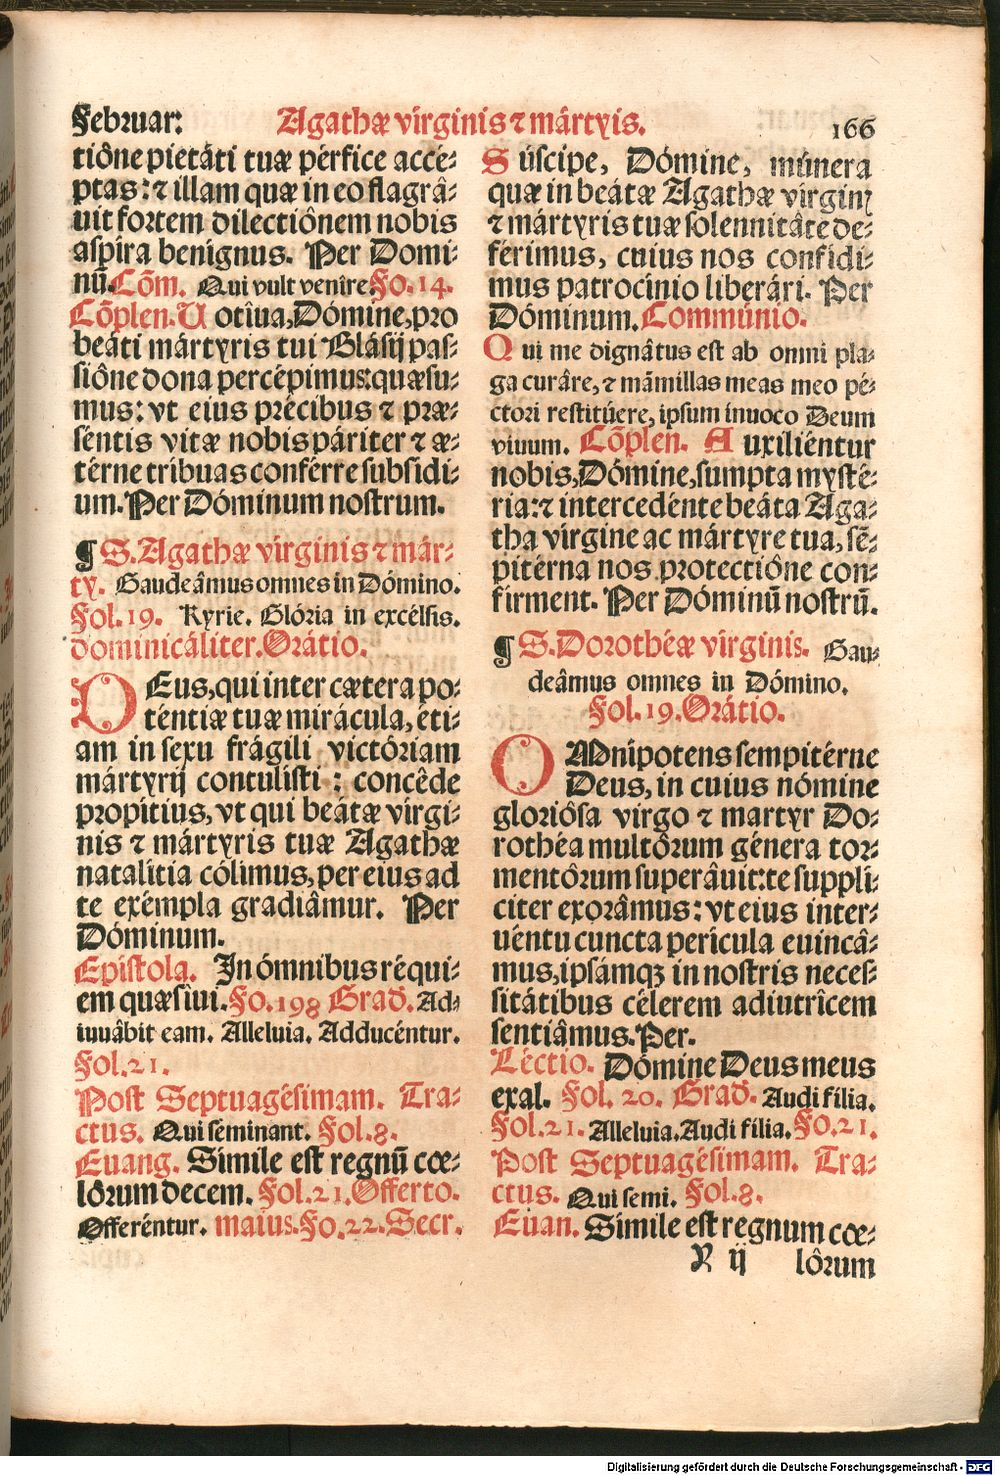 Februar: Agathæ virginis ⁊ mártyris. 166
tiône pietáti tuæ pérfice accé⸗
ptas: ⁊ illam quæ in eo flagrâ⸗
uit fortem dilectiônem nobis
aspíra benignus. Per Domi⸗
nũ. Cõm. Qui vult venîre. Fo. 14.
Cõplen. Uotíua, Dómine, pro
beáti mártyris tui Blásij pas⸗
siône dona percépimus: quæsu⸗
mus: vt eius précibus ⁊ præ⸗
séntis vitæ nobis páriter ⁊ æ⸗
térne tribuas conférre subsidi⸗
um. Per Dóminum nostrum.
¶ S. Agathæ virginis ⁊ már⸗
ty. Gaudeâmus omnes in Dómino.
Fol. 19. Kyrie. Glória in excélsis.
dominicáliter. Orátio.
DEus, qui inter cætera po⸗
téntiæ tuæ mirácula, éti⸗
am in sexu frágili victôriam
mártyrij contulisti: concéde
propítius, vt qui beátæ vírgi⸗
nis ⁊ mártyris tuæ Agathæ
natalítia cólimus, per eius ad
te exémpla gradiâmur. Per
Dóminum.
Epistola. In ómnibus réqui⸗
em quæsîui. Fo. 198 Grad. Ad⸗
iuuâbit eam. Alleluia. Adducéntur.
Fol. 21.
Post Septuagésimam. Tra⸗
ctus. Qui seminant. Fol. 8.
Euang. Símile est regnũ cœ⸗
lôrum decem. Fol. 21. Offerto.
Offeréntur. maius. Fo. 22. Secr.
Súscipe, Dómine, múnera
quæ in beátæ Agathæ vírginꝭ
⁊ mártyris tuæ solennitâte de⸗
férimus, cuius nos confídi⸗
mus patrocínio liberári. Per
Dóminum. Commúnio.
Qui me dignâtus est ab omni pla⸗
ga curâre, ⁊ mãmillas meas meo pé⸗
ctori restitúere, ipsum ínuoco Deum
viuum. Cõplen. Auxiliéntur
nobis, Dómine, sumpta mysté⸗
ria: ⁊ intercedénte beáta Aga⸗
tha vírgine ac mártyre tua, sẽ⸗
pitérna nos protectiône con⸗
firment. Per Dóminũ nostrũ.
¶ S. Dorothéæ virginis. Gau⸗
deâmus omnes in Dómino.
Fol. 19. Orátio.
OMnípotens sempitérne
Deus, in cuius nómine
gloriôsa virgo ⁊ martyr Do⸗
rothéa multôrum génera tor⸗
mentôrum superâuit: te suppli⸗
citer exorâmus: vt eius inter⸗
uéntu cuncta perícula euincâ⸗
mus, ipsámqꝫ in nostris neces⸗
sitátibus célerem adiutrîcem
sentiâmus. Per.
Léctio. Dómine Deus meus
exal. Fol. 20. Grad. Audi fília.
Fol. 21. Alleluia. Audi fília. Fo. 21.
Post Septuagésimam. Tra⸗
ctus. Qui semi. Fol. 8.
Euan. Símile est regnum cœ⸗
Y ij lôrum
Digitalisierung gefördert durch die Deutsche Forschungsgemeinschaft - DFG